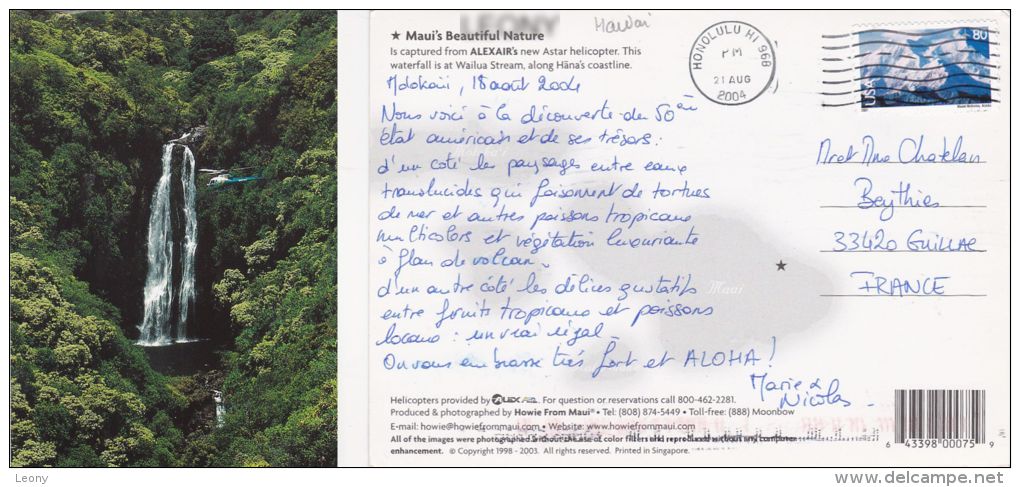 LEONY
Hawai
★ Maui's Beautiful Nature
Is captured from ALEXAIR's new Astar helicopter. This
waterfall is at Wailua Stream, along Hāna's coastline.
HONOLULU HI 968
PM
21 AUG
2004
USA
80
18 août 2004
Nous voici à la découverte du 50ème
état américain et de ses trésors:
d'un coté les paysages entre eaux
translucides qui foisonnent de tortues
de mer et autres poissons tropicaux
multicolors et végétation luxuriante
à flan de volcan.
d'un autre coté les délices gustatifs
entre fruits tropicaux et poissons
locaux: un vrai régal
On vous embrasse très fort et ALOHA!
Marie &
Nicolas
Mr et Mme Chatelan
Beythies
33420 GUILLAC
FRANCE
Maui
Helicopters provided by ALEX AIR. For question or reservations call 800-462-2281.
Produced & photographed by Howie From Maui® • Tel: (808) 874-5449 • Toll-free: (888) Moonbow
E-mail: howie@howiefrommaui.com • Website: www.howiefrommaui.com
All of the images were photographed without the use of color filters and reproduced without any computer
enhancement. © Copyright 1998 - 2003. All rights reserved. Printed in Singapore.
6 43398 00075 9
Leony
www.delcampe.net